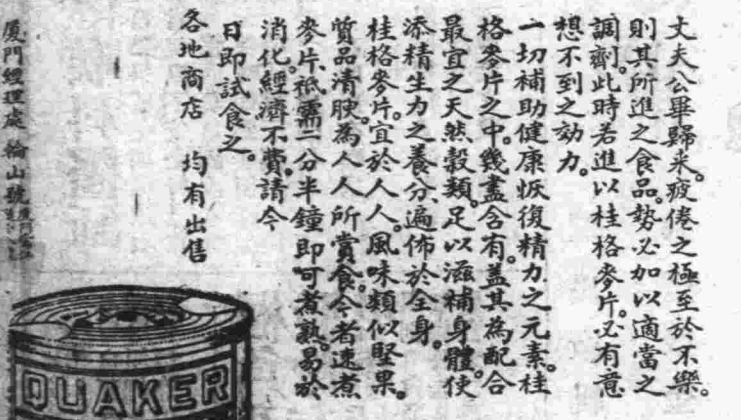 丈夫公畢歸來。疲倦之極至於不樂。
則其所進之食品。勢必加以適當之
調劑。此時若進以桂格麥片。必有意
想不到之効力。
一切補助健康恢復精力之元素。桂
格麥片之中。幾盡含有。蓋其為配合
最宜之天然穀類。足以滋補身體。使
添精生力之養分。遍佈於全身。
桂格麥片。宜於人人。風味類似堅果。
質品清腴。為人人所賞食。今者速煮
麥片、祇需二分半鐘即可煮熟。易於
消化。經濟不費。請今
日即試食之。
各地商店 均有出售
厦門經理處 輪山號
QUAKER